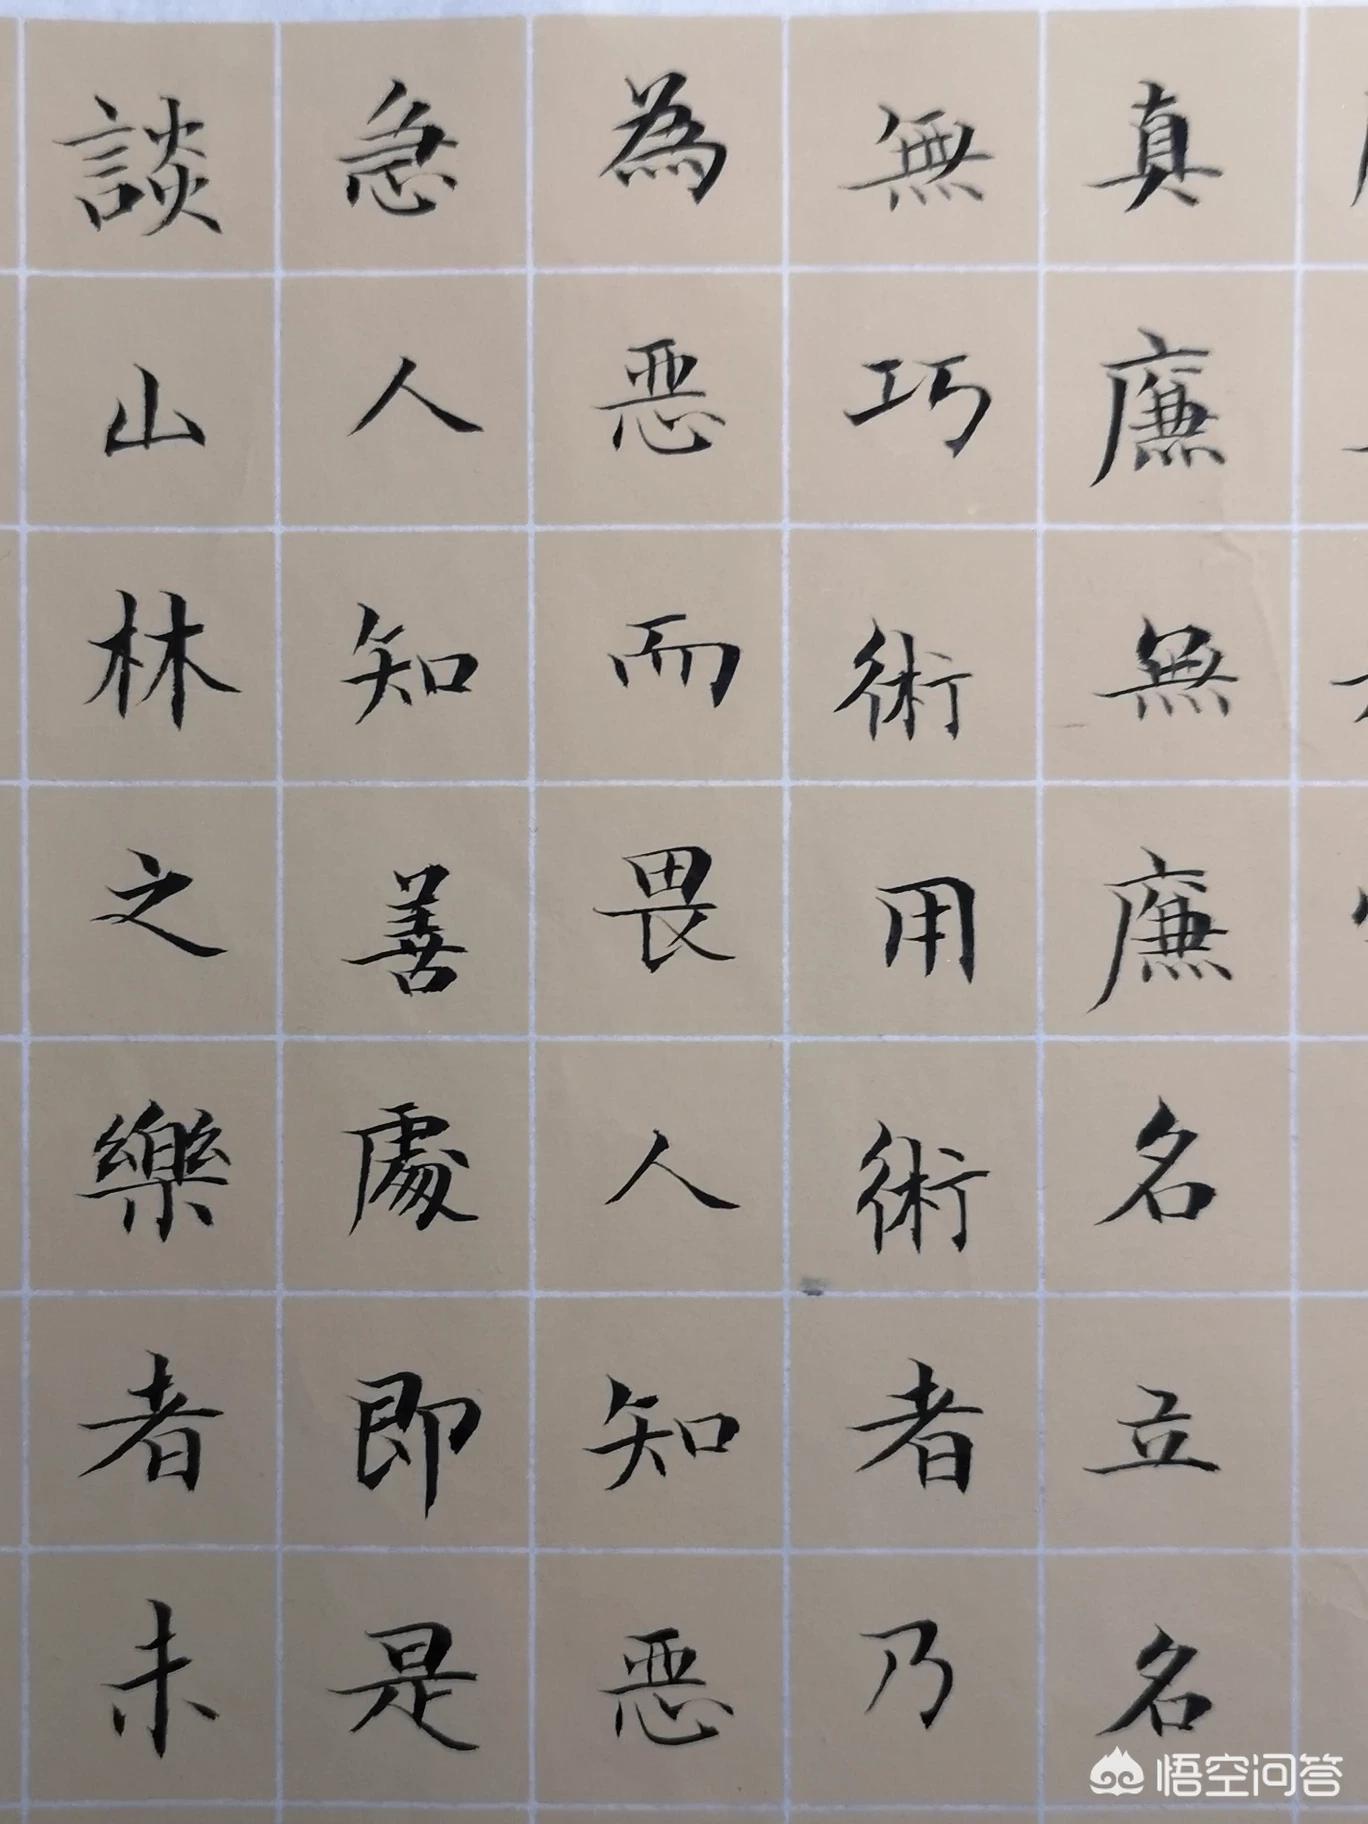 真廉無廉名立名
無巧術用術者乃
為惡而畏人知恶
急人知善處即是
談山林之樂者未
悟空问答